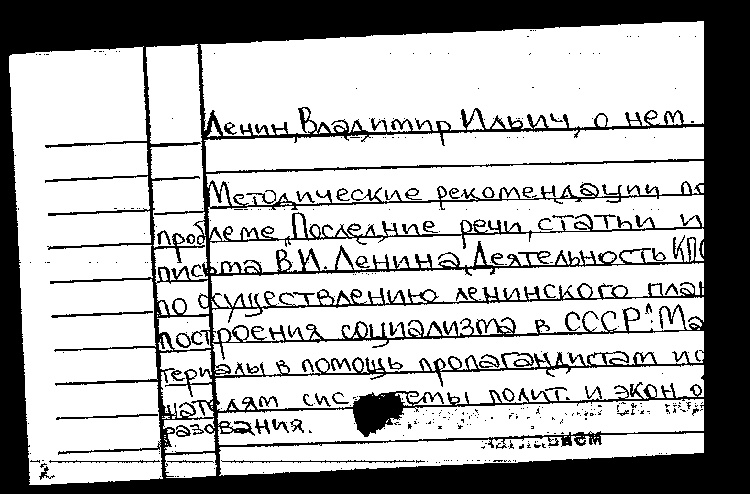 Ленин, Владимир Ильич, о нем.
Методические рекомендации по
проблеме „Последние речи, статьи и
письма В.И. Ленина. Деятельность КПС
по осуществлению ленинского план
построения социализма в СССР": Ма
териалы в помощь пропагандистам и с
шателям системы полит. и экон. о
разования.
см. под
заглавием
2